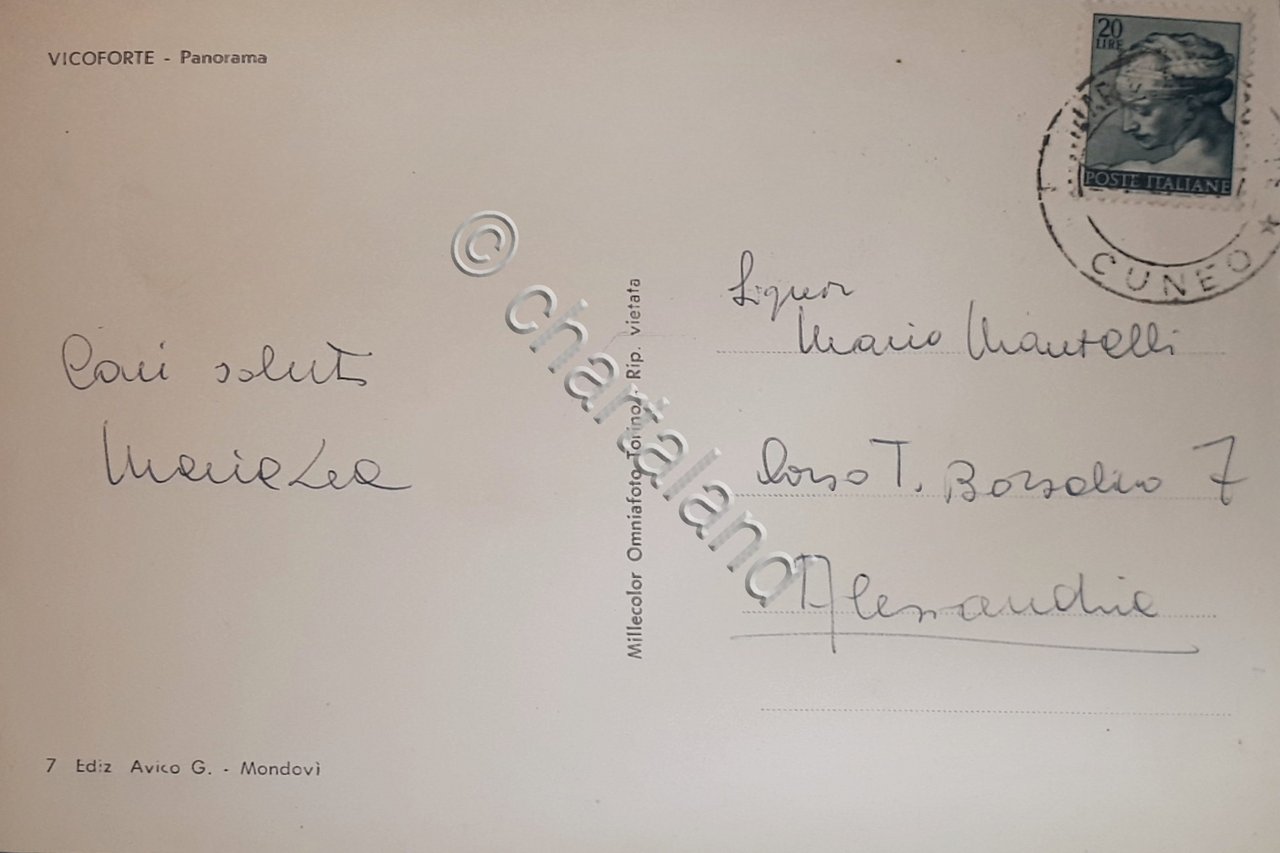 VICOFORTE - Panorama
20
LIRE
POSTE ITALIANE
CUNEO
© chartaland
Cari saluti
Maria Lea
Millecolor Omniafoto Torino - Rip. vietata
Signor
Mario Mantelli
Corso T. Borsalino 7
Alessandria
7 Ediz Avico G. - Mondovì